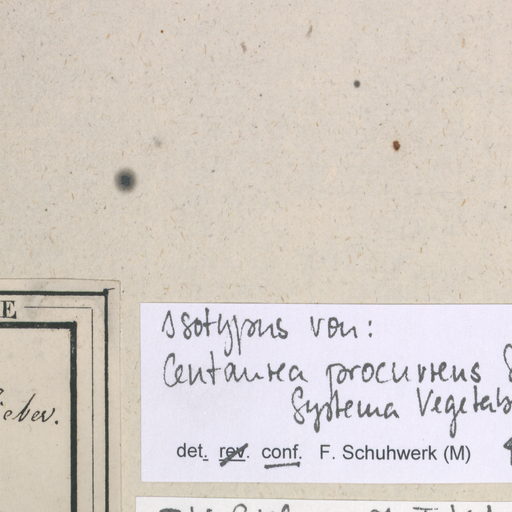 E
Isotypus von:
Centaurea procurrens S
Systema Vegetab
ieber.
det. rev. conf. F. Schuhwerk (M)